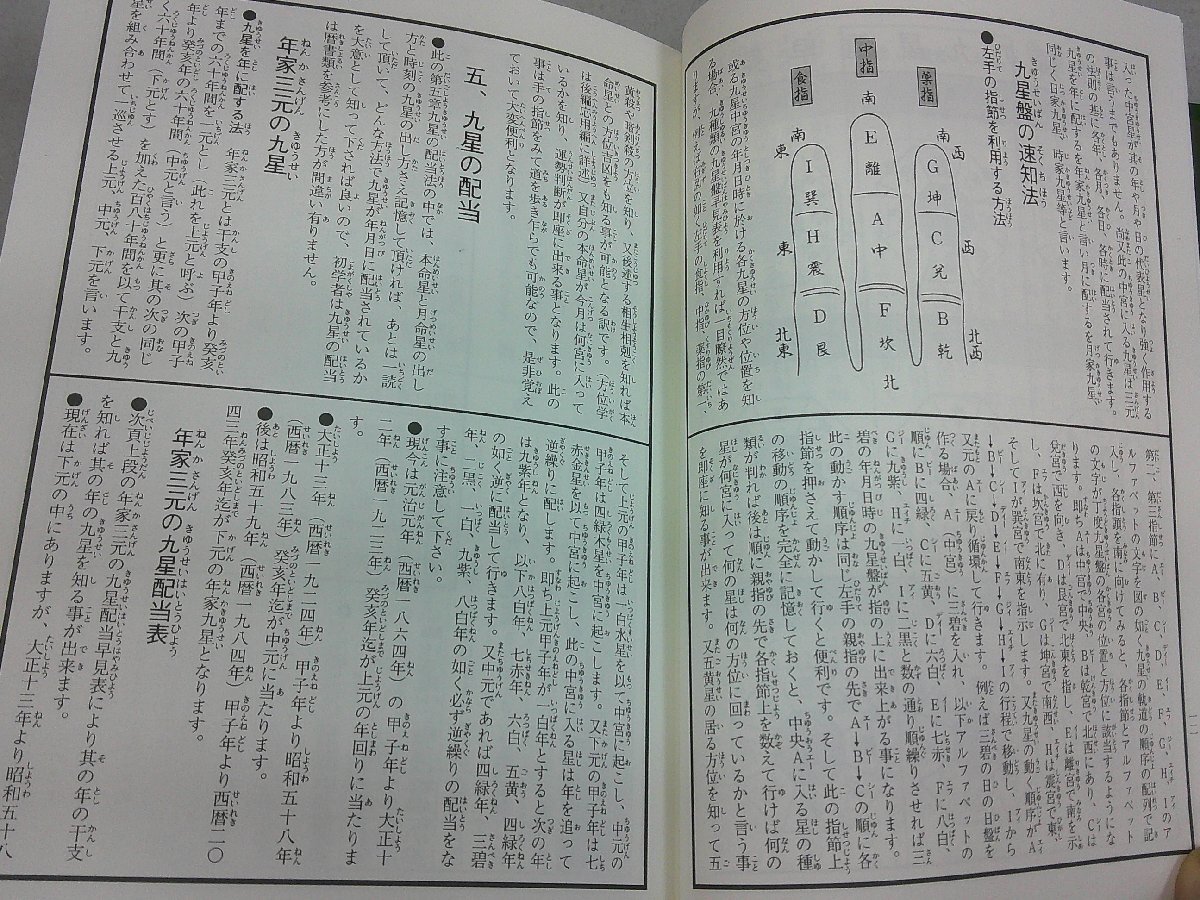 入った中宮星が其の年や月や日の代表星となり強く作用する
事は言うまでもありません。尚又此の中宮に入る九星は三元
の法則の基に各年、各月、各日、各時に配当されて行きます。
九星を年に配するを年家九星と言い月に配するを月家九星、
同じく日家九星、時家九星等と言います。
九星盤の速知法
●左手の指節を利用する方法
薬指
中指
食指
南
西
南
南
東
G
坤
E
離
I
巽
C
兌
西
A
中
H
震
東
B
乾
北西
F
坎
北
D
艮
北東
或る九星中宮の年月日時に於ける各九星の方位や位置を知
る場合、九種類の九星盤早見表を利用すれば一目瞭然ではあ
りますが、
第二、第三指節にA、B、C、D、E、F、G、H、Iのア
ルファベットの文字を図の如く九星の軌道の順序の配列で記
入し、各指頭を南に向けてみると、各指節とアルファベット
の文字が丁度九星盤の各宮の位置と方位に該当するようにな
ります。即ちAは中宮で中央、Bは乾宮で北西にあり、Cは
兌宮で西を向き、Dは艮宮で北東を指し、Eは離宮で南を示
し、Fは坎宮で北に有り、Gは坤宮で南西、Hは震宮で東、
そしてIが巽宮で南東を指示します。又九星の動く順序がA
→B→C→D→E→F→G→H→Iの行程で移動し、Iから
又元のAに戻り循環して行きます。例えば三碧の日の日盤を
作る場合、A（中宮）に三碧を入れ、以下アルファベットの
順にBに四緑、Cに五黄、Dに六白、Eに七赤、Fに八白、
Gに九紫、Hに一白、Iに二黒と数の通り順繰りさせれば三
碧の年月日時の九星盤が指の上に出来上がる事になります。
此の動かす順序は同じ左手の親指の先でA→B→Cの順に各
指節を押さえて動かして行くと便利です。そして此の指節上
の移動の順序を完全に記憶しておくと、中央Aに入る星の種
類が判れば後は順に親指の先で各指節上を数えて行けば何の
星が何宮に入って何の星は何の方位に回っているかと言う事
を即座に知る事が出来ます。又五黄星の居る方位を知って五
黄殺や暗剣殺の方位を知り、又後述する相生相剋を知れば本
命星との方位吉凶をも知る事が可能となる訳です。（方位学
は後編芯申編に詳述）又自分の本命星が今月は何宮に入って
いるかを知り、運勢判断が即座に出来る事となります。此の
事は手の指節をみて道を歩き乍らでも可能なので、是非覚え
ておいて大変便利となります。
五、九星の配当
●此の第五章九星の配当法の中では、本命星と月命星の出し
方と時刻の九星の出し方さえ記憶して頂ければ、あとは一読
して頂いて、どんな方法で九星が年月日に配当されているか
を大意として知って下されば良いので、初学者は九星の配当
は暦書類を参考にした方が間違い有りません。
年家三元の九星
●九星を年に配する法　年家三元とは干支の甲子年より癸亥
年までの六十年間を一元とし、此れを上元と呼ぶ）次の甲子
年より癸亥年の六十年間（中元と言う）と更に其の次の同じ
く六十年間（下元とす）を加えた百八十年間を以て干支と九
星を組み合わせて一巡させる上元、中元、下元を言います。
そして上元の甲子年は一白水星を以て中宮に起こし、中元の
甲子年は四緑木星を中宮に起こします。又下元の甲子年は七
赤金星を以て中宮に起こし、此の中宮に入る星は年を追って
逆繰りに配します。即ち上元甲子年が一白年とすると次の年
は九紫年となり、以下八白年、七赤年、六白、五黄、四緑年
の如く逆に配当して行きます。又中元であれば四緑年、三碧
年、二黒、一白、九紫、八白年の如く必ず逆繰りの配当をな
す事に注意して下さい。
●現今は元治元年（西暦一八六四年）の甲子年より大正十
二年（西暦一九二三年）癸亥年迄が上元の年回りに当たりま
す。
●大正十三年（西暦一九二四年）甲子年より昭和五十八年
（西暦一九八三年）癸亥年迄が中元に当たります。
●後は昭和五十九年（西暦一九八四年）甲子年より西暦二〇
四三年癸亥年迄が下元の年家九星となります。
年家三元の九星配当表
●次頁上段の年家三元の九星配当早見表により其の年の干支
を知れば其の年の九星を知る事が出来ます。
●現在は下元の中にありますが、大正十三年より昭和五十八